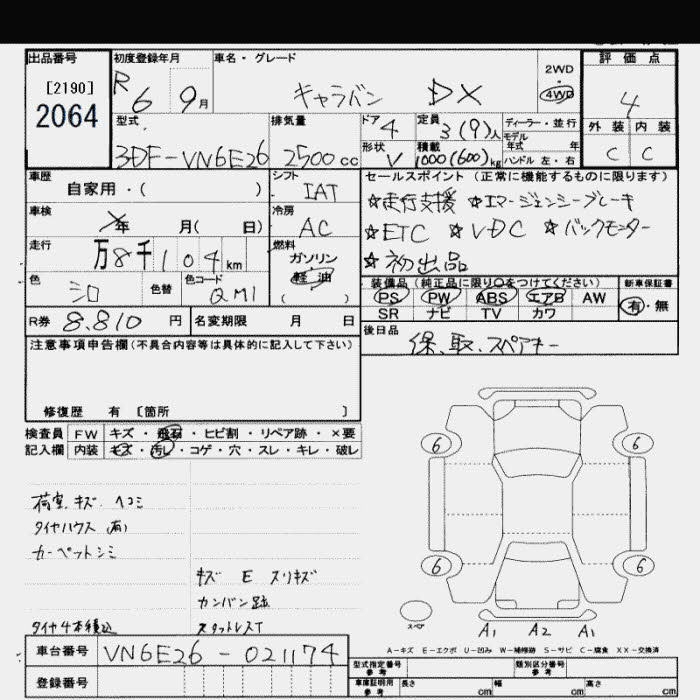 出品番号 初度登録年月 車名・グレード 評価点
[2190] R 6 9月 キャラバン DX 2WD・4WD 4
2064
型式 排気量 ドア 4 定員 3(9)人 ディーラー・並行 外装 内装
モデル年式 年
3DF-VN6E26 2500cc 形状 V 積載 1000(600)kg ハンドル 左・右 C C
車歴 シフト セールスポイント (正常に機能するものに限ります)
自家用・( ) IAT ☆走行支援 ☆エマージェンシーブレーキ
車検 年 月( 日) 冷房 AC ☆ETC ☆VDC ☆バックモニター
走行 万8千104km 燃料 ガソリン ☆初出品
色 シロ 色替 色コード QM1 軽油 装備品(純正品に限り○をつけてください) 新車保証書
( ) PS PW ABS エアB AW 有・無
SR ナビ TV カワ
R券 8.810 円 名変期限 月 日 後日品
注意事項申告欄(不具合内容等は具体的に記入して下さい) 保、取、スペアキー
修復歴 有 [箇所 ]
検査員 FW キズ・飛石・ヒビ割・リペア跡・×要
記入欄 内装 キズ・汚れ・コゲ・穴・スレ・キレ・破レ
6 6
荷室.キズ.ヘコミ
タイヤハウス (有)
カーペットシミ
6 6
キズ E スリキズ
カンバン跡
タイヤ4本積込 スタットレスT
スペア A1 A2 A1
A-キズ E-エクボ U-凹み W-補修跡 S-サビ C-腐食 XX-交換済
車台番号 VN6E26-021174
型式指定番号 参考 類別区分番号 参考
登録番号 車庫証明用 参考 長さ cm 幅 cm 高さ cm